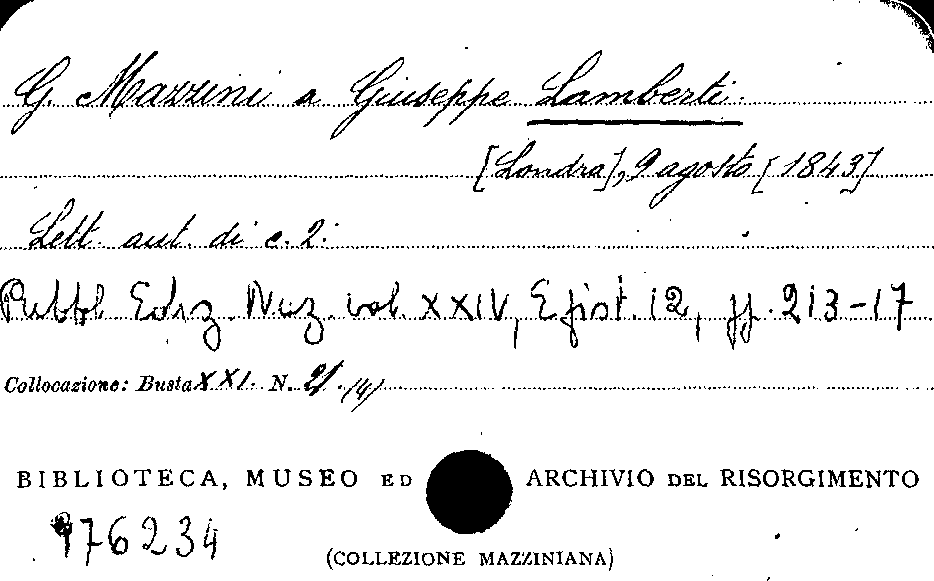 G. Mazzini a Giuseppe Lamberti.
[Londra], 9 agosto [1843]
Lett. aut. di c. 2.
Pubbl. Ediz. Naz. vol. XXIV, Epist. 12, pp. 213-17
Collocazione: Busta XXI. N. 2/. (4)
BIBLIOTECA, MUSEO ED ARCHIVIO DEL RISORGIMENTO
976234
(COLLEZIONE MAZZINIANA)